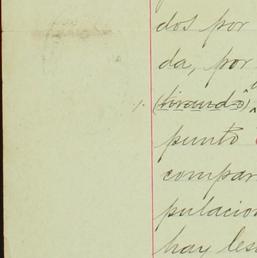 dos por
da, por
(tirando)
punto
compar
pulacion
hay les